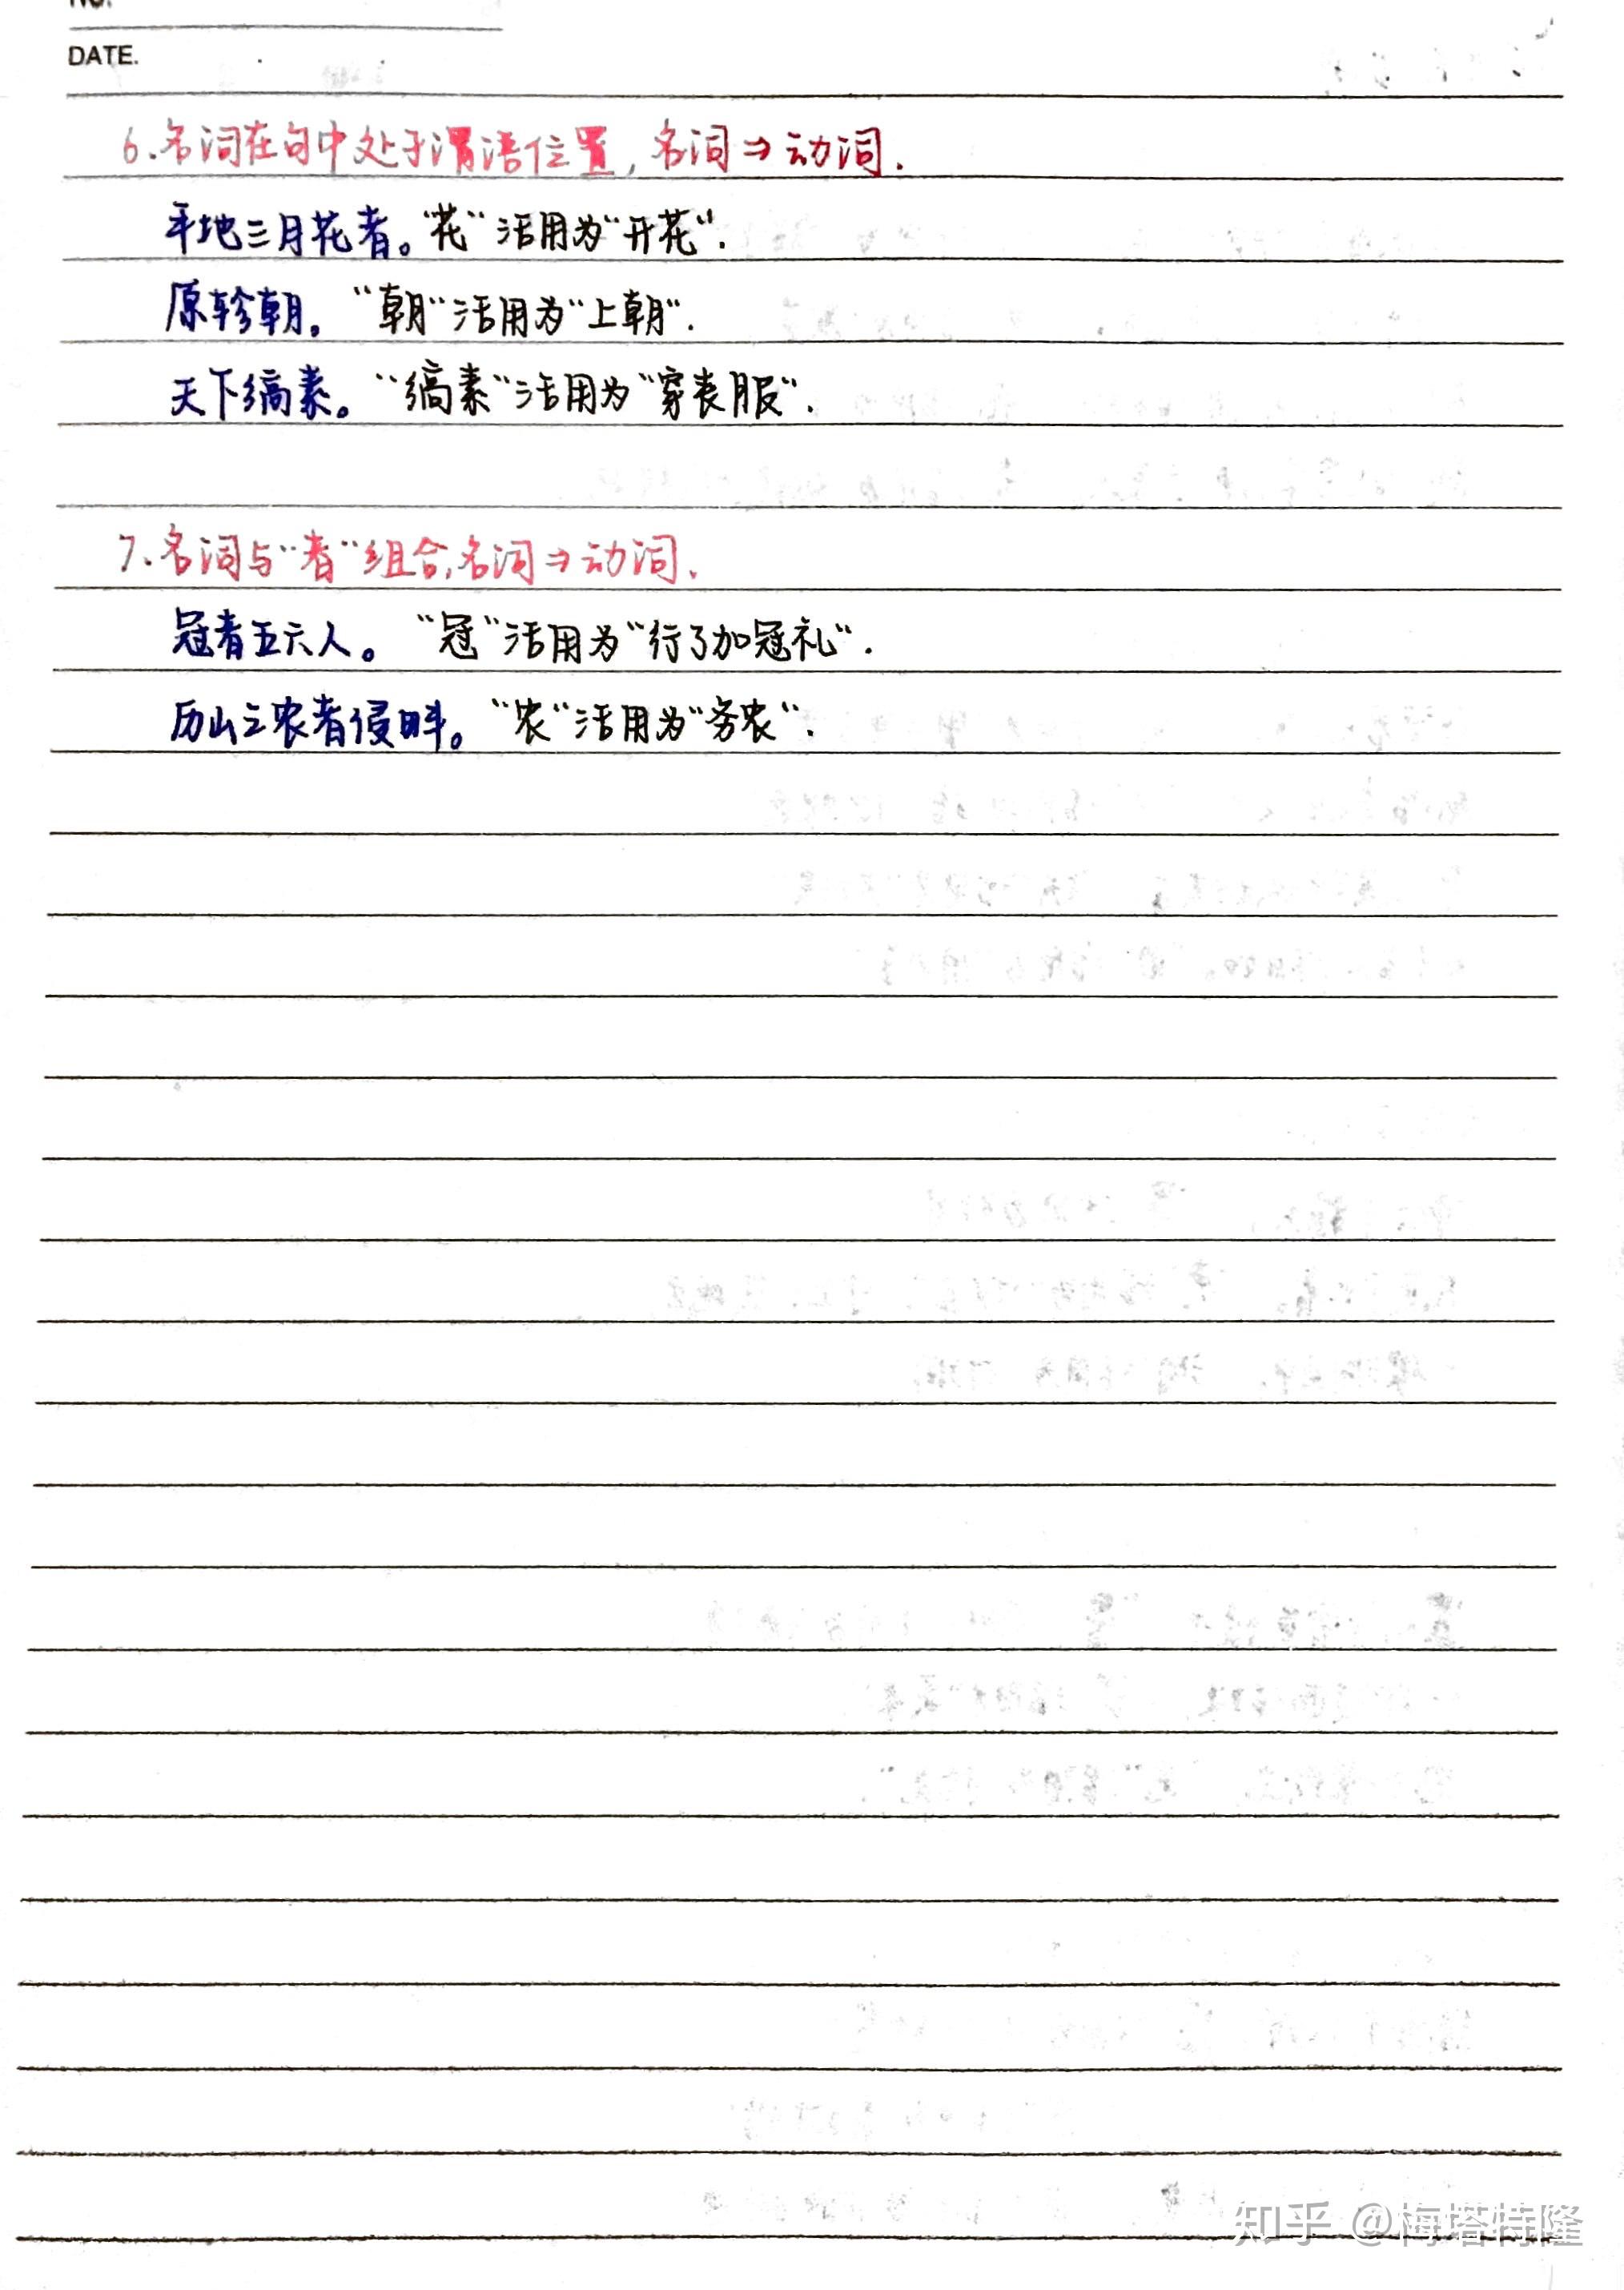 NO.
DATE.
6.名词在句中处于谓语位置,名词⇒动词.
平地三月花者。“花”活用为“开花”.
原轸朝。“朝”活用为“上朝”.
天下缟素。“缟素”活用为“穿丧服”.
7.名词与“者”组合,名词⇒动词.
冠者五六人。“冠”活用为“行了加冠礼”.
历山之农者侵畔。“农”活用为“务农”.
知乎 @梅塔特隆